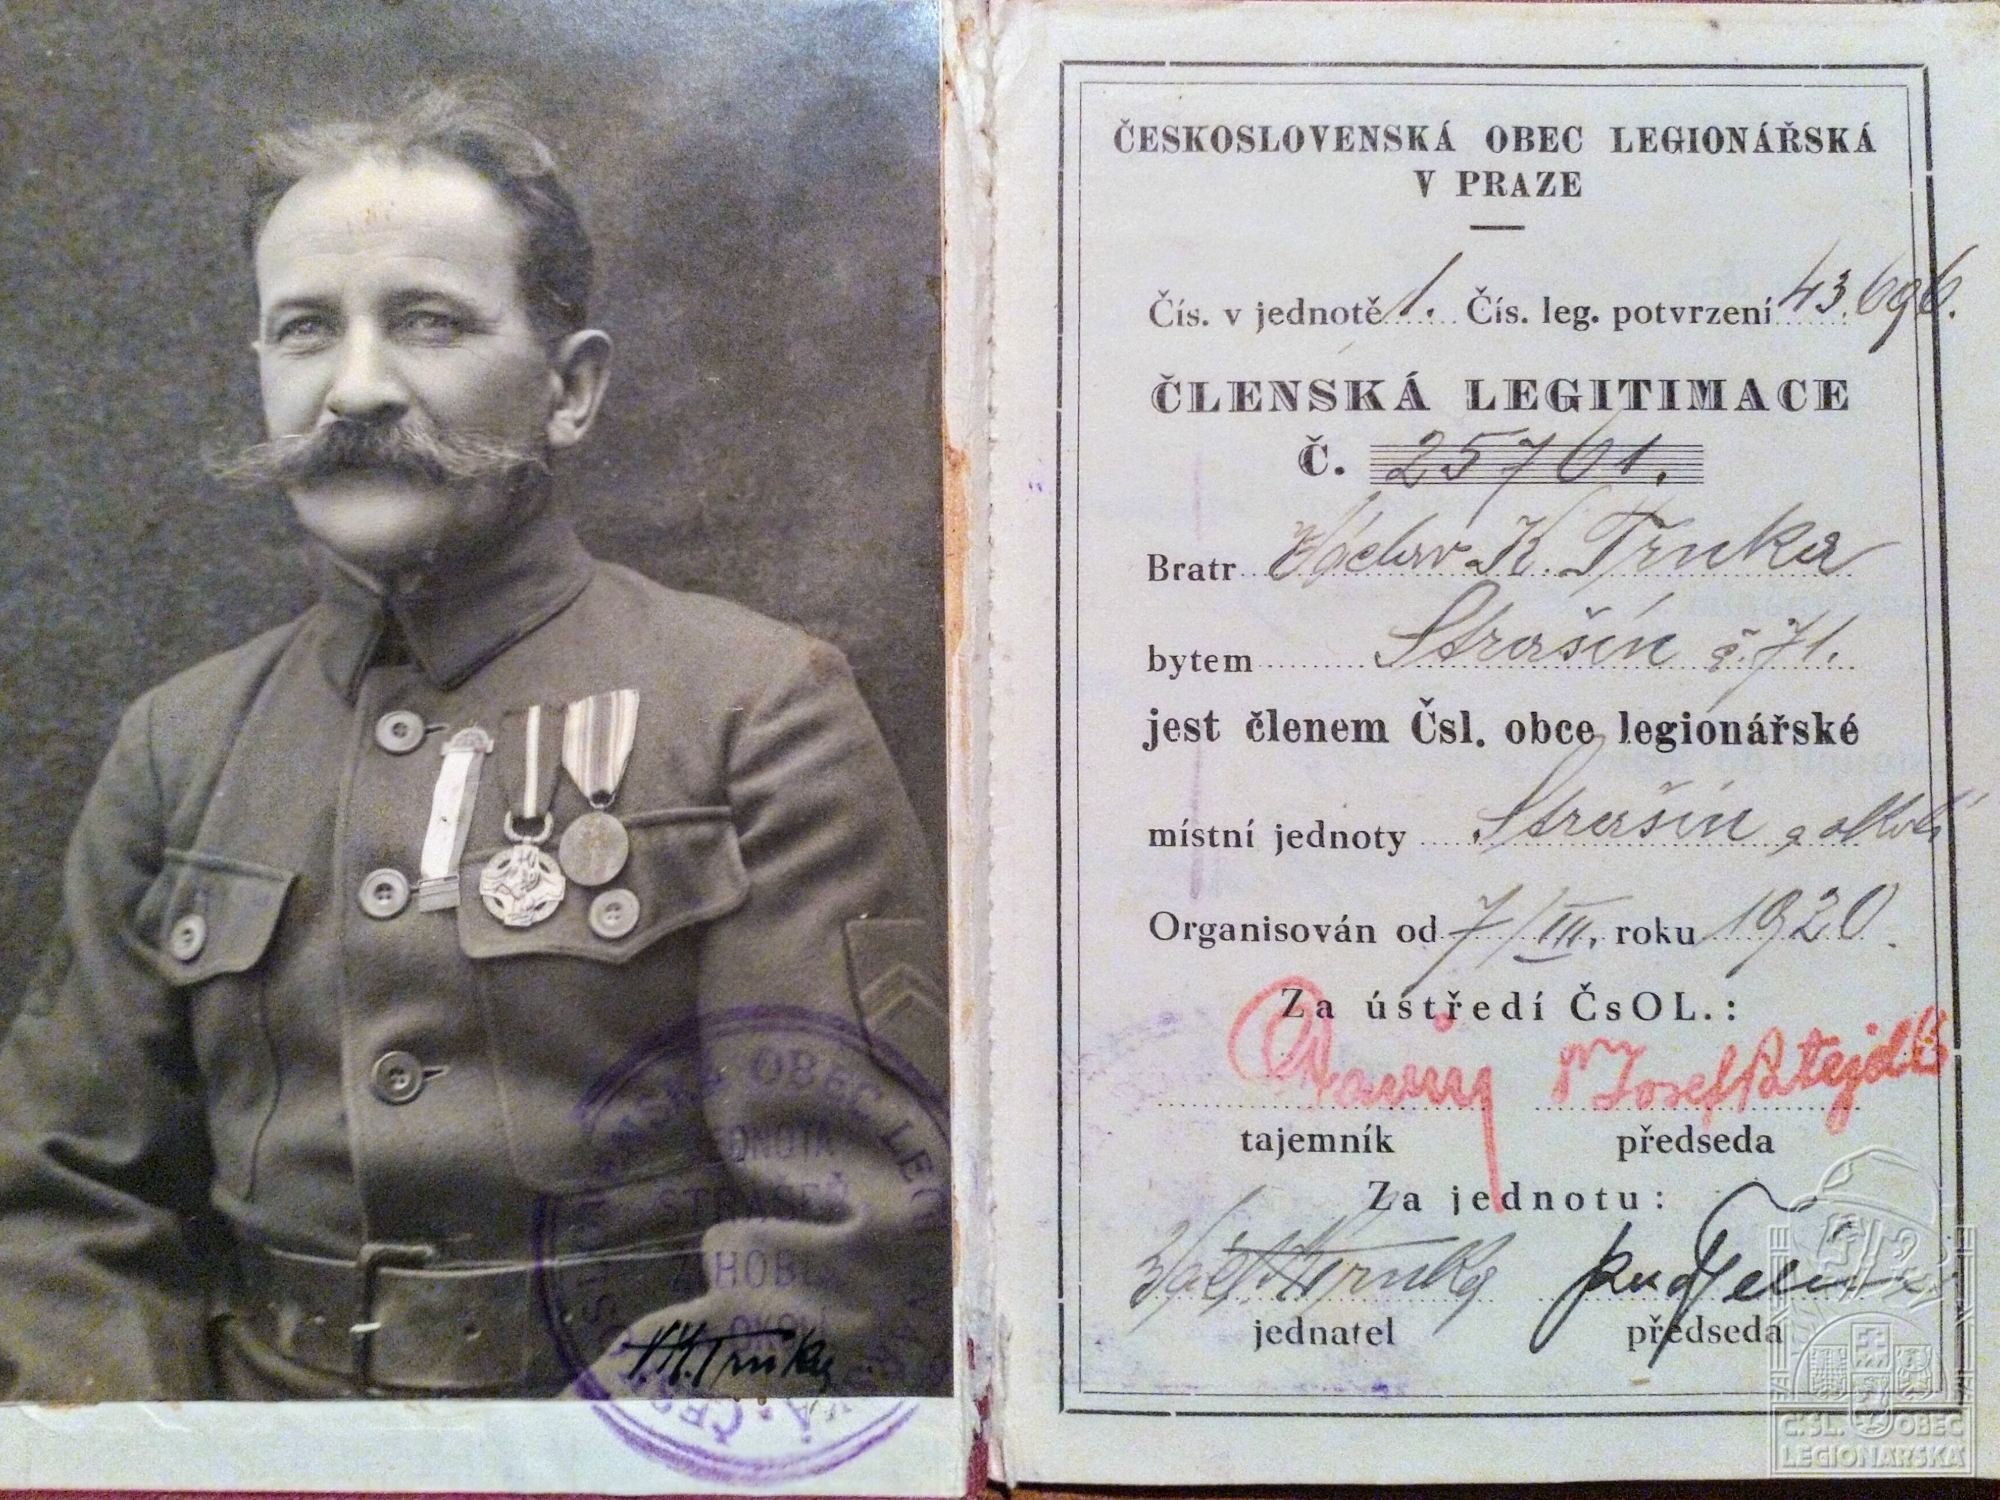 ČESKOSLOVENSKÁ OBEC LEGIONÁŘSKÁ
V PRAZE
Čís. v jednotě 1. Čís. leg. potvrzení 43.696.
ČLENSKÁ LEGITIMACE
Č. 25761.
Bratr Václav K. Trnka
bytem Strašín č. 71.
jest členem Čsl. obce legionářské
místní jednoty Strašín a okolí
Organisován od 7/III. roku 1920.
Za ústředí ČsOL.:
Dr Josef Patejdl
tajemník předseda
Za jednotu:
Václ. K. Trnka
jednatel předseda
OBEC LEG
JEDNOTA
V.K. Trnka
Č.SL. OBEC
LEGIONÁŘSKÁ